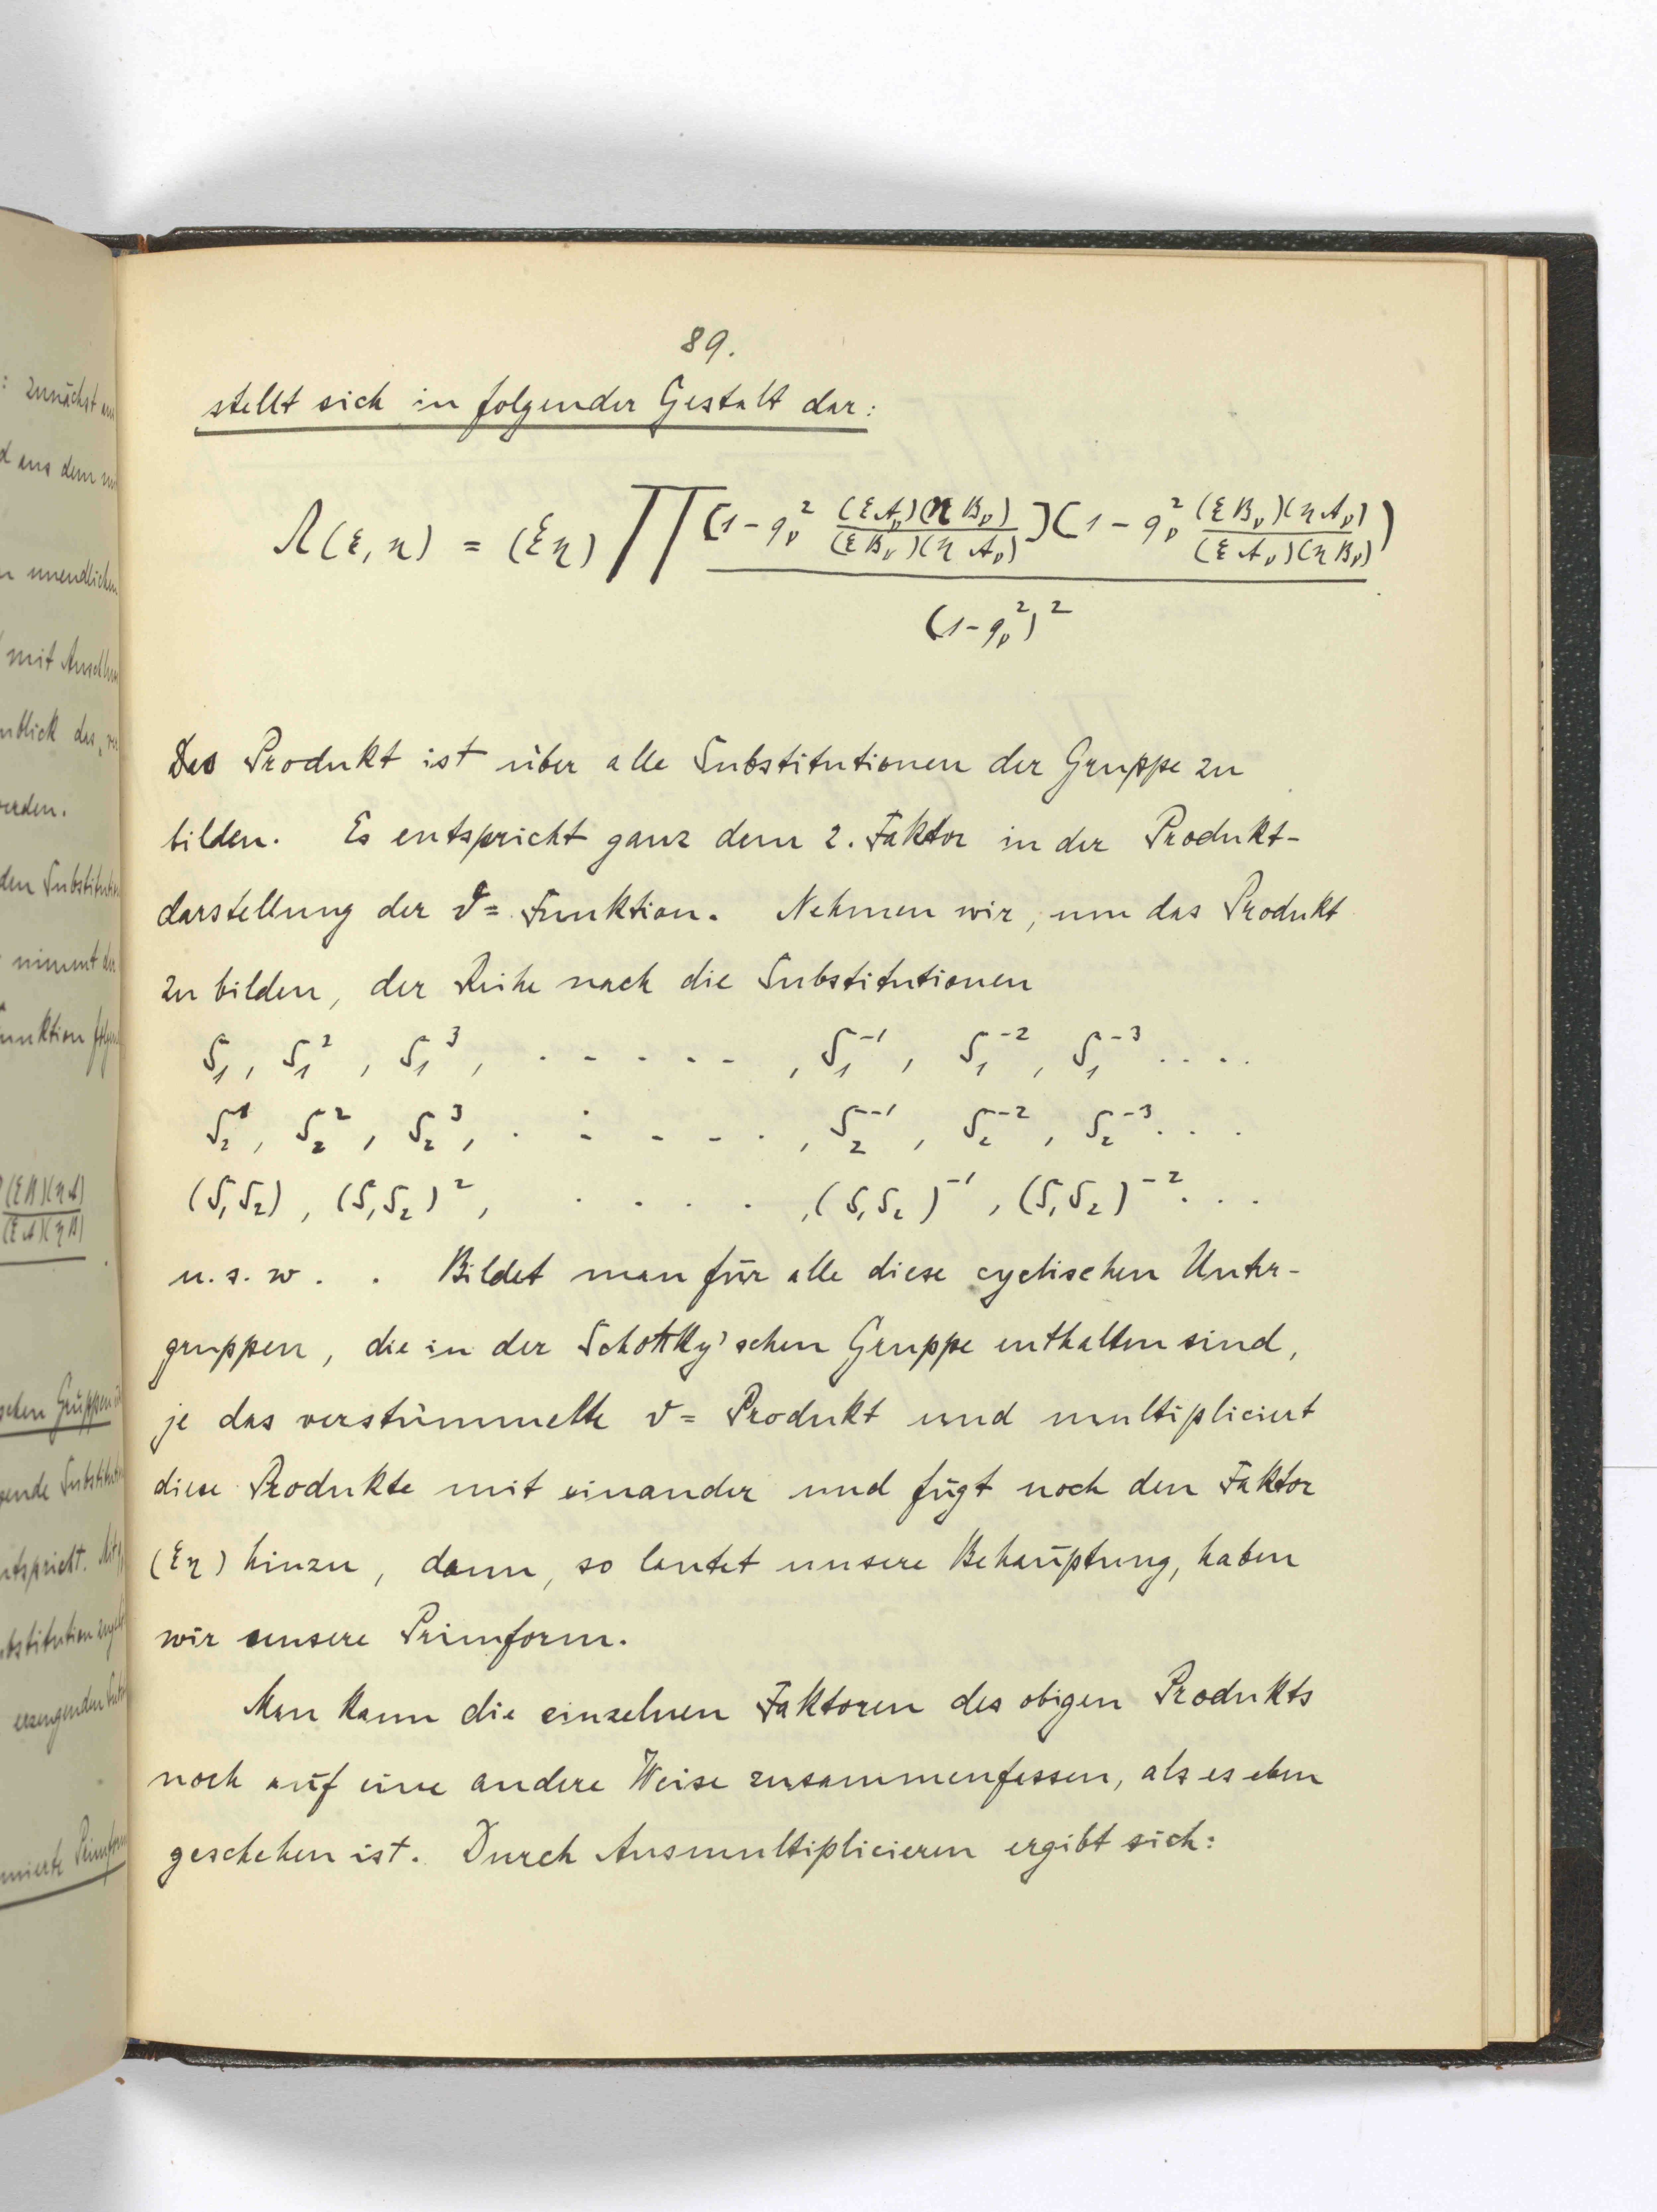 : zunächst
aus dem
unendlichen
mit
nblick des
werden.
den
nimmt
unktion
(ξB)(ηA)
(ξA)(ηB)
schen Gruppen
ntspricht.
bstitution
erzeugenden
89.
stellt sich in folgender Gestalt dar:
Λ(ξ,η) = (ξη) ∏ [1-q_ν^2 (ξA_ν)(ηB_ν)/(ξB_ν)(ηA_ν)](1-q_ν^2 (ξB_ν)(ηA_ν)/(ξA_ν)(ηB_ν))
(1-q_ν^2)^2
Das Produkt ist über alle Substitutionen der Gruppe zu
bilden. Es entspricht ganz dem 2. Faktor in der Produkt-
darstellung der ϑ= Funktion. Nehmen wir, um das Produkt
zu bilden, der Reihe nach die Substitutionen
S_1, S_1^2, S_1^3, . - - - - , S_1^-1, S_1^-2, S_1^-3 ....
S_2^1, S_2^2, S_2^3, . - - - - . , S_2^-1, S_2^-2, S_2^-3 ...
(S_1S_2), (S_1S_2)^2, . . . . . ,(S_1S_2)^-1, (S_1S_2)^-2 ...
u.s.w. . Bildet man für alle diese cyclischen Unter-
gruppen, die in der Schottky'schen Gruppe enthalten sind,
je das verstümmelte ϑ= Produkt und multipliciert
diese Produkte mit einander und fügt noch den Faktor
(ξη) hinzu, dann, so lautet unsere Behauptung, haben
wir unsere Primform.
Man kann die einzelnen Faktoren des obigen Produkts
noch auf eine andere Weise zusammenfassen, als es eben
geschehen ist. Durch Ausmultiplicieren ergibt sich: